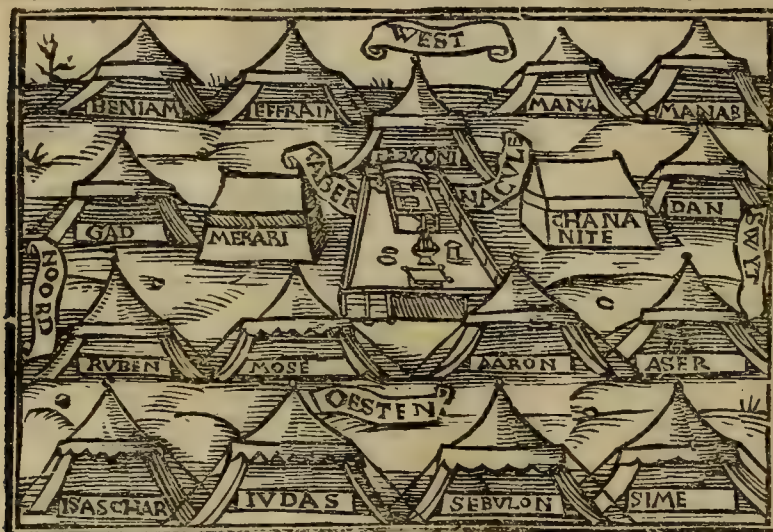 WEST
BENIAM
EFFRAIM
MANA
MANAS
TABER
NACVLE
GAD
MERARI
CHANA
NITE
DAN
NOORD
SWYT
RVBEN
MOSE
AARON
ASER
OESTEN
ISASCHAR
IVDAS
SEBVLON
SIME